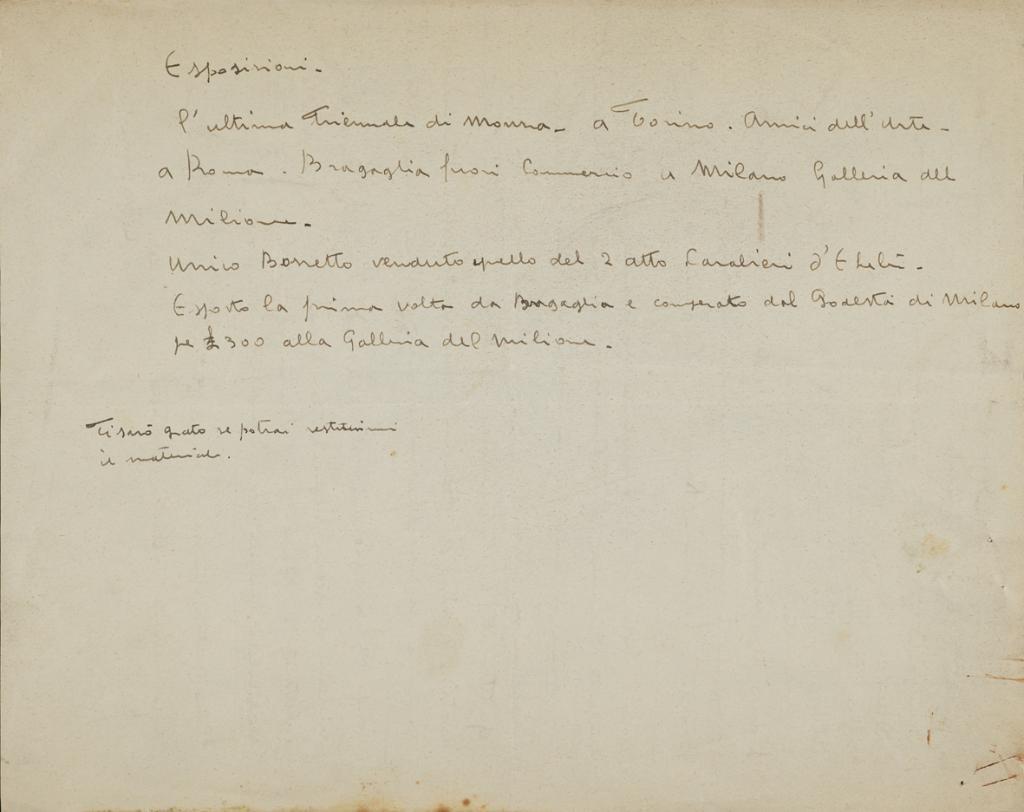 Esposizioni.
l'ultima Triennale di Monza - a Torino. Amici dell'Arte -
a Roma. Bragaglia fuori Commercio a Milano Galleria del
Milione.
Unico Bozzetto venduto quello del 2 atto Cavalieri d'Ekebù.
Esposto la prima volta da Bragaglia e comperato dal Podestà di Milano
pe £300 alla Galleria del Milione.
Ti sarò grato se potrai restituirmi
il materiale.